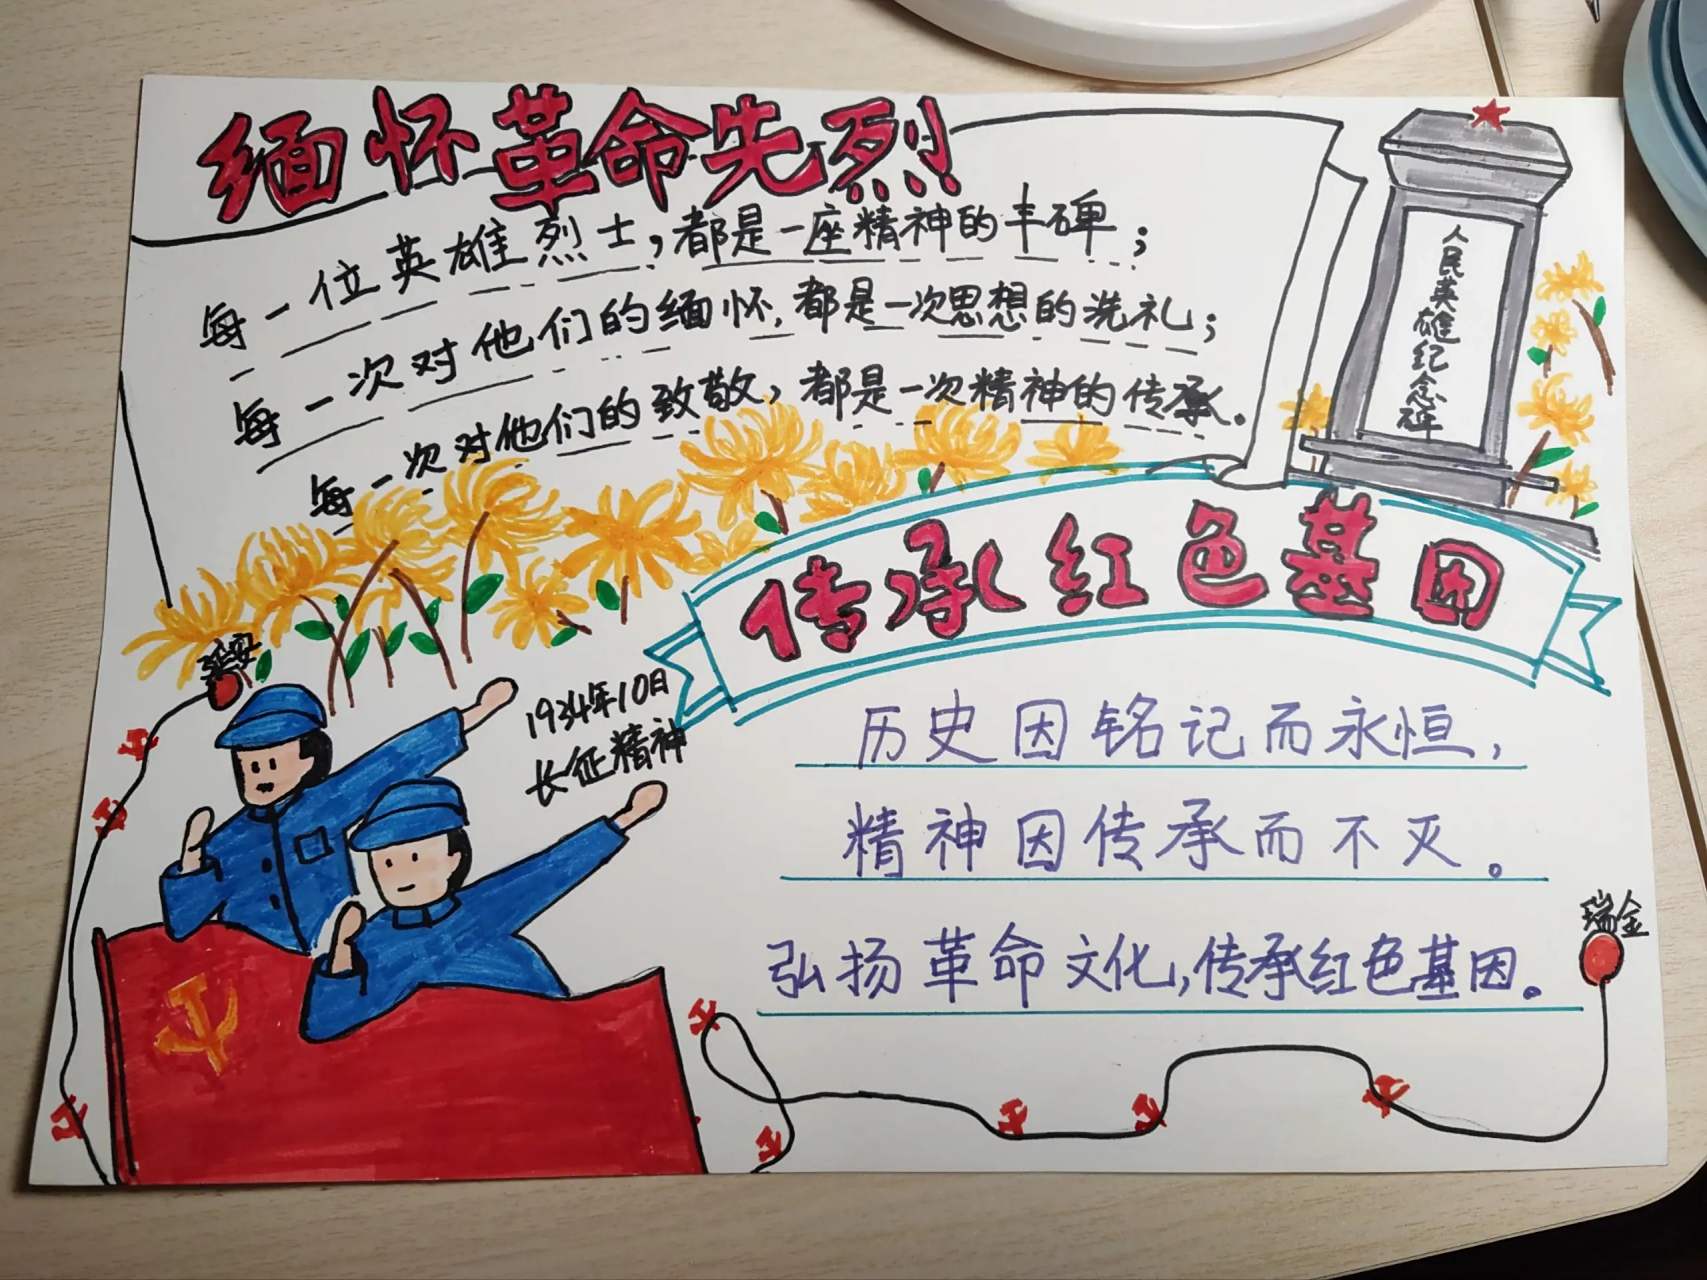 缅怀革命先烈
每一位英雄烈士,都是一座精神的丰碑;
每一次对他们的缅怀,都是一次思想的洗礼;
每一次对他们的致敬,都是一次精神的传承。
人民英雄纪念碑
传承红色基因
延安
1934年10日
长征精神
历史因铭记而永恒,
精神因传承而不灭。
弘扬革命文化,传承红色基因。
瑞金